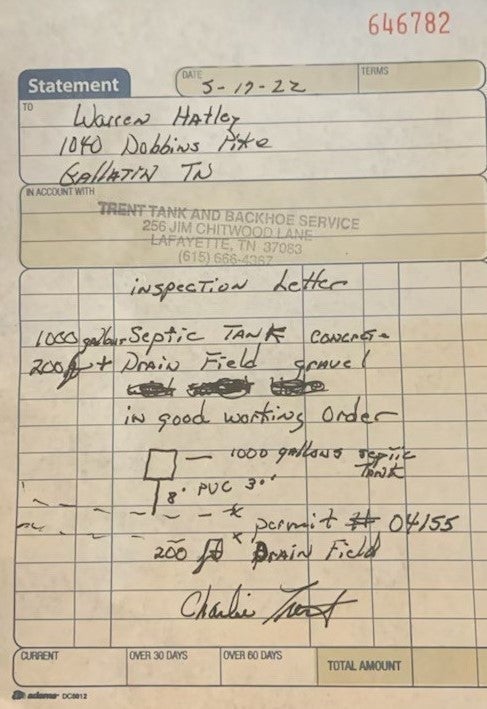 646782
Statement
DATE 5-17-22 TERMS
TO Warren Hatley
1040 Dobbins Pike
Gallatin TN
IN ACCOUNT WITH
TRENT TANK AND BACKHOE SERVICE
256 JIM CHITWOOD LANE
LAFAYETTE, TN 37083
(615) 666-4367
inspection Letter
1000 gallons Septic Tank concrete
200 ft Drain Field gravel
in good working Order
1000 gallons septic
Tank
8' PVC 3"
permit # 04155
200 ft Drain Field
Charlie Trent
CURRENT OVER 30 DAYS OVER 60 DAYS TOTAL AMOUNT
adams DC5812